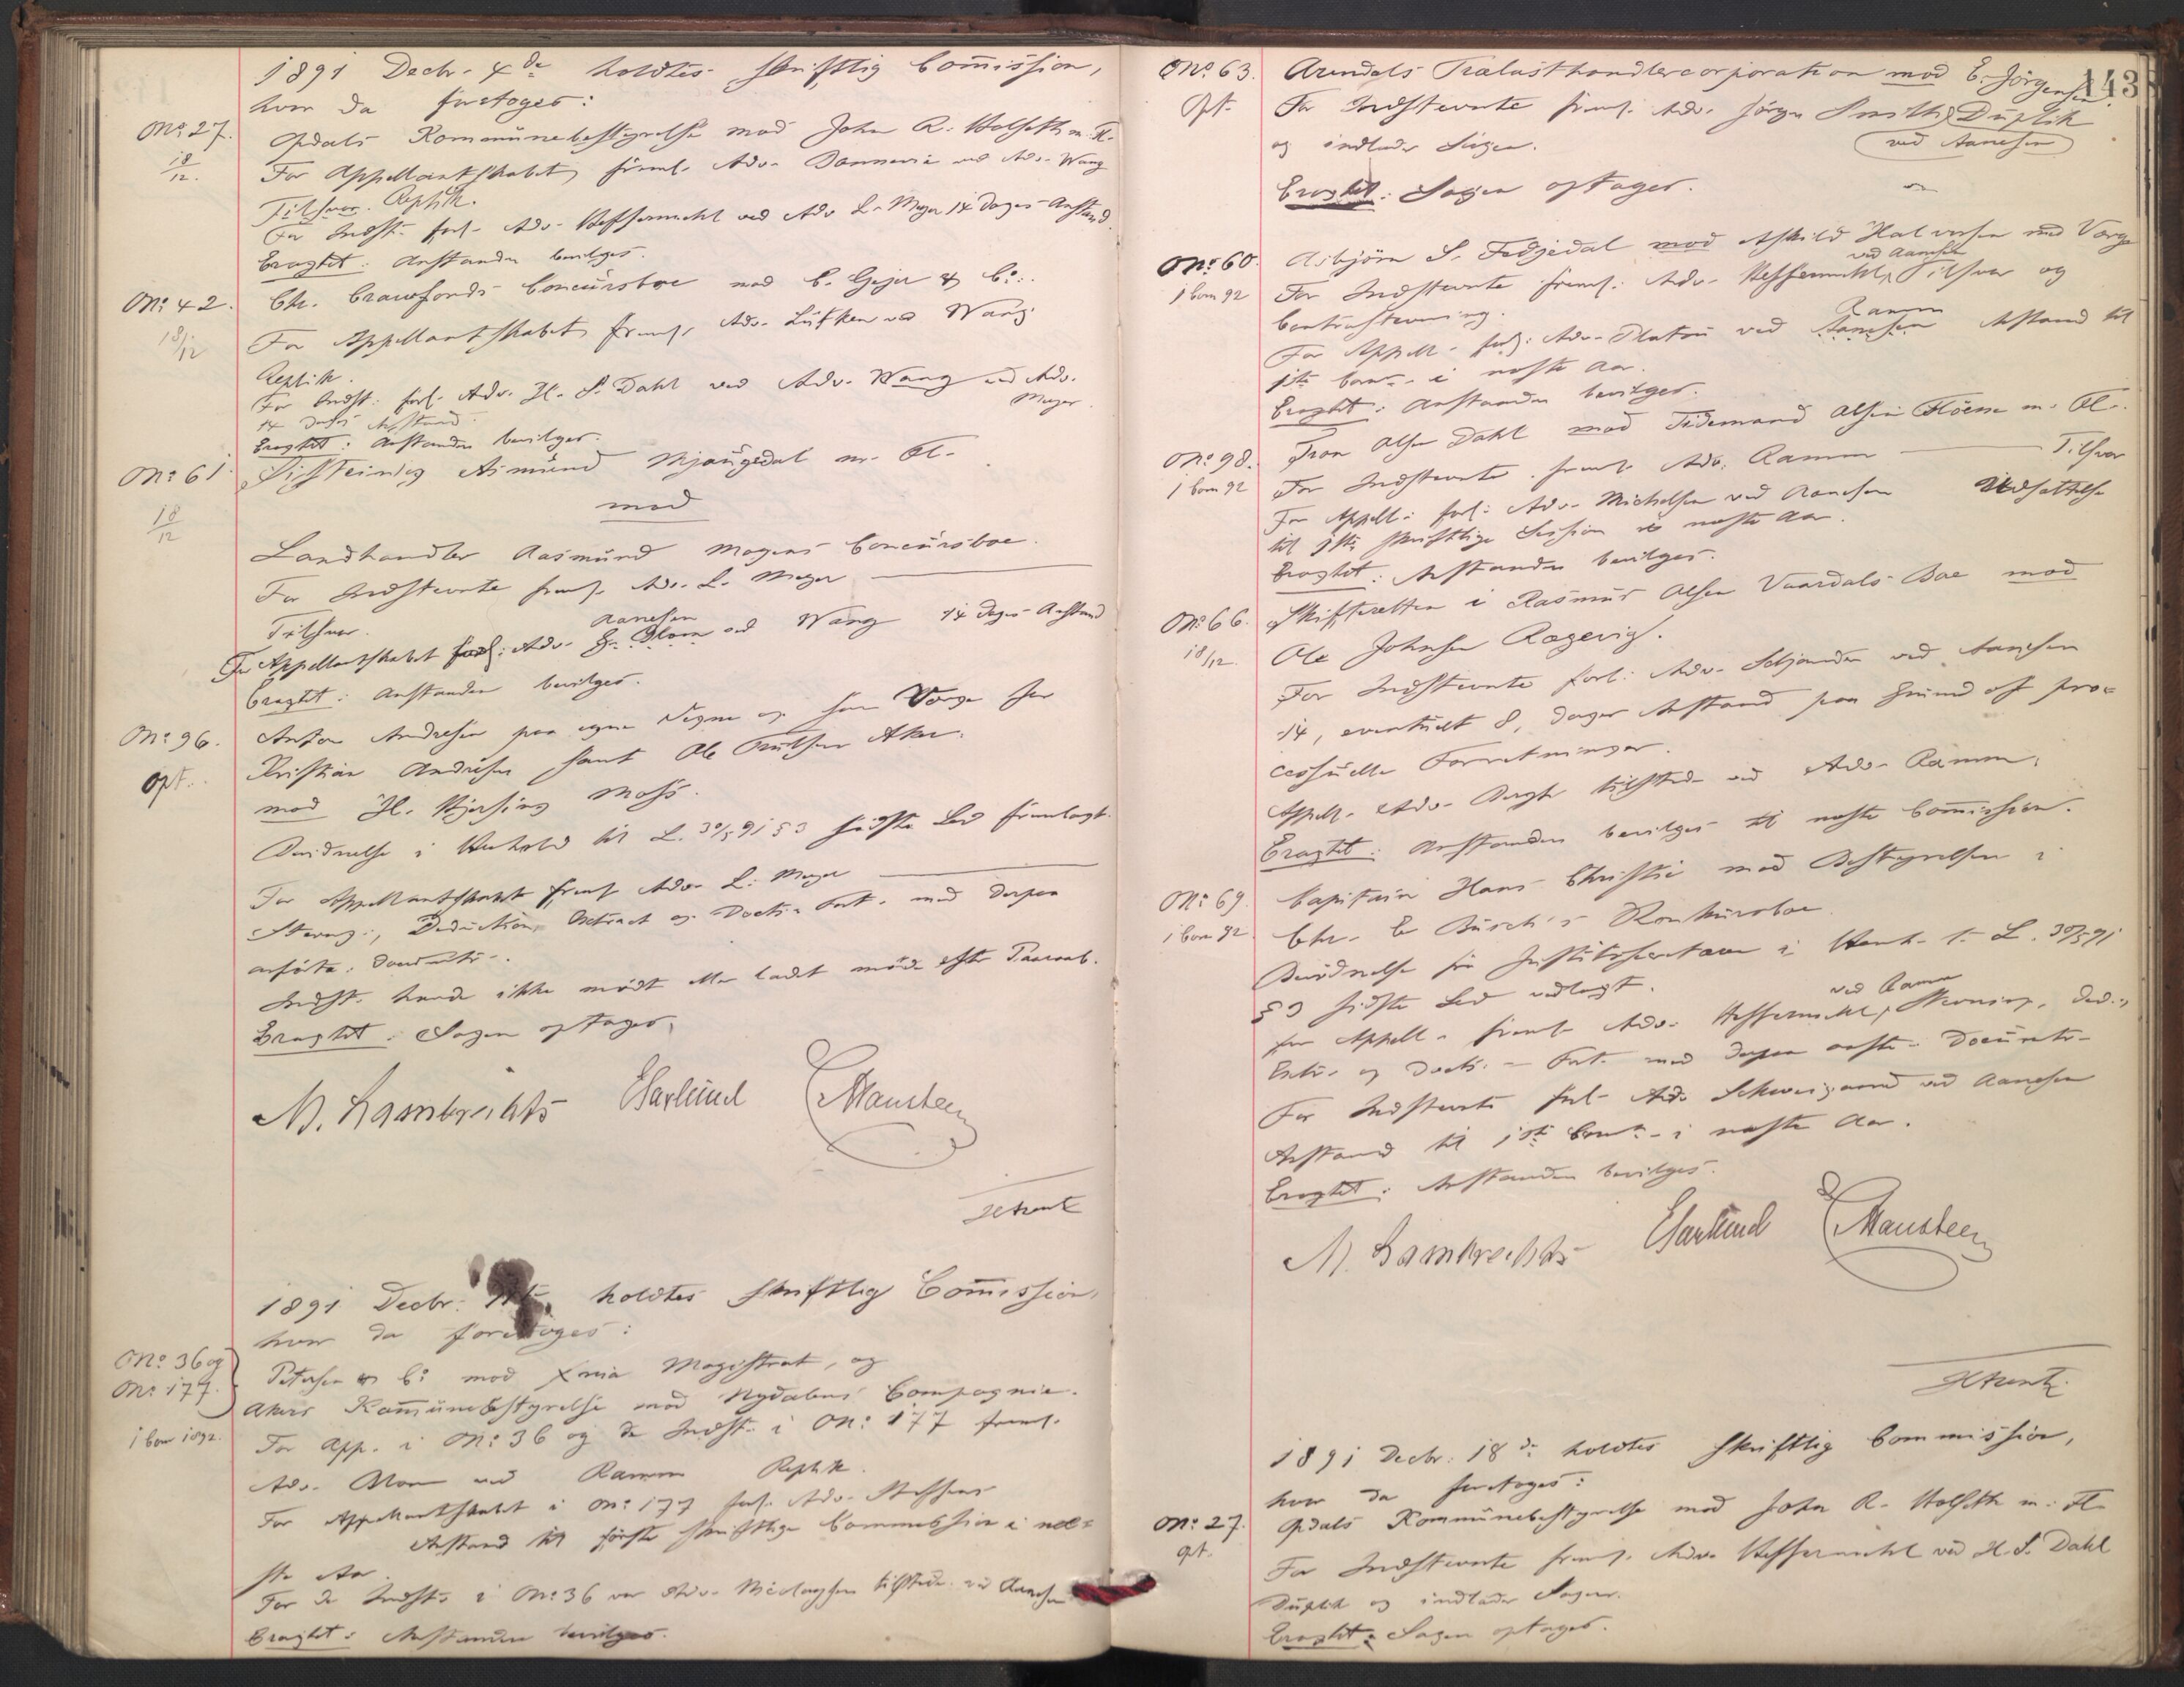 1891 Decbr. 4de holdtes skriftlig Commission,
hvor da foretoges:
No. 27. Opdals Kommünebestyrelse mod John R. Wolseth m. Fl.
18/12. For Appellantskabet freml. Adv. Dannevig ved Adv. Wang
Tilsvar. Replik.
For Indst. forl. Adv. Heffermehl ved Adv. L. Meyer 14 Dages Anstand.
Eragtet: Anstanden bevilges.
No. 42. Chr. Crawfords Concürsboe mod C. Geijer & Co.
18/12 For Appellantskabet freml. Adv. Lütken ved Wang
Replik.
For Indst. forl. Adv. H. S. Dahl ved Adv. Wang ved Adv. Meyer.
14 Dages Anstand.
Eragtet: Anstanden bevilges.
No. 61 Asmünd Mjaugedal m. Fl.
18/12 mod
Landhandler Aasmünd Mogens Concürsboe.
For Indstevnte freml. Adv. L. Meyer
Tilsvar.
Aanesen
For Appellantskabet forl. Adv. Blom ved Wang 14 Dages Anstand
Eragtet: Anstanden bevilges.
No. 96. Anton Andresen paa egne Vegne og som Værge for
opt. Kristian Andresen samt Ole Aker.
mod H. Moss.
Bevidnelse i Henhold til L. 30/5 91 § 3 sidste Led fremlagt.
For Appellantskabet freml. Adv. L. Meyer
Stevng., Deduction, Extract og Doct. Fort. med derpaa
anførte
Indst. havde ikke mødt eller ladet møde efter Paaraab.
Eragtet: Sagen optages.
M. Lambrechts EHarlind Mausteen
1891 Decbr. holdtes skriftlig Commission,
hvor da foretoges:
No. 36 og Petersen & Co mod Xnia Magistrat, og
No. 177. Akers Kommünebestyrelse mod Nydalens Compagnie.
1 Com 1892. For App. i No. 36 og de Indst. i No. 177 freml.
Adv. Blom ved Ramm Replik.
For Appellantskabet i No. 177 forl. Adv. Steffens
Anstand til første skriftlige Commission i næ-
ste Aar.
For de Indst. i No. 36 var Adv. Nicolaysen tilstede ved Aanesen
Eragtet: Anstanden bevilges.
143
No. 63. Arendals Trælasthandlercorporation mod E. Jörgensen.
opt. For Indstevnte freml. Adv. Jörgen Smith Düplik
og indlader Sagen. ved Aanesen
Eragtet: Sagen optages.
No. 60. Asbjörn S. Fedgedal mod Askild Halvorsen med Værge
ved Aanesen
1 Com 92 For Indstevnte freml. Adv. Heffermehl, Tilsvar og
Contrastevning.
Ramm
For Appell. forl. Adv. Platou ved Aanesen Anstand til
1ste Com. i næste Aar.
Eragtet: Anstanden bevilges.
No. 98. Tron Olsen Dahl mod Tidemand Olsen Flöene m. Fl.
1 Com 92 For Indstevnte freml. Adv. Ramm Tilsvar
For Appell. forl. Adv. Michelsen ved Aanesen Udsættelse
til 1ste skriftlige Session i næste Aar.
Eragtet: Anstanden bevilges.
No. 66. Skifteretten i Rasmüs Olsen Vaardals Boe mod
18/12. Ole Johnsen Rægevig.
For Indstevnte forl. Adv. Schjander ved Aanesen
14, eventüelt 8, Dages Anstand paa Gründ af pro-
cessüelle Forretninger.
Appell. Adv. Bugge tilstede ved Adv. Ramm.
Eragtet: Anstanden bevilges til næste Commission.
No. 69. Capitain Hans Christie mod Bestyrelsen i
1 Com 92. Chr. E Büsch's Konkürsboe.
Bevidnelse fra Jüstitssecretairen i Henh. t. L. 30/5 91
§ 3 sidste Led vedlagt.
ved Ramm
for Appell. freml. Adv. Heffermehl, Stevning, Ded.,
Extr. og Doct. - Fort. med derpaa anførte Documenter.
For Indstevnte forl. Adv. Schweigaard ved Aanesen
Anstand til 1ste Com. i næste Aar.
Eragtet: Anstanden bevilges.
M. Lambrechts EHarlind Mausteen
1891 Decbr. 18de holdtes skriftlig Commission,
hvor da foretoges:
No. 27. Opdals Kommünebestyrelse mod John R. Wolseth m. Fl.
opt. For Indstevnte freml. Adv. Heffermehl ved H. S. Dahl
Düplik og indlader Sagen.
Eragtet: Sagen optages.